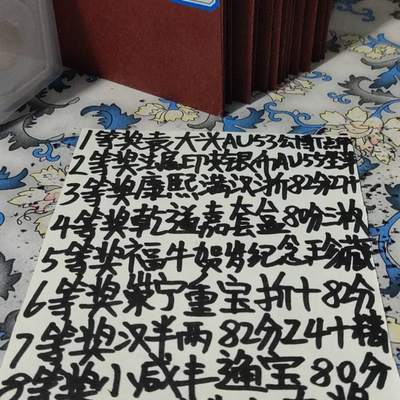 1等奖袁大头AU53公博
2等奖 AU55
3等奖康熙满汉折82分
4等奖乾道嘉套盒80分三枚
5等奖福牛贺岁纪念珍藏
6等奖崇宁重宝折十82分
7等奖汉半两82分24
8等奖小咸丰通宝80分